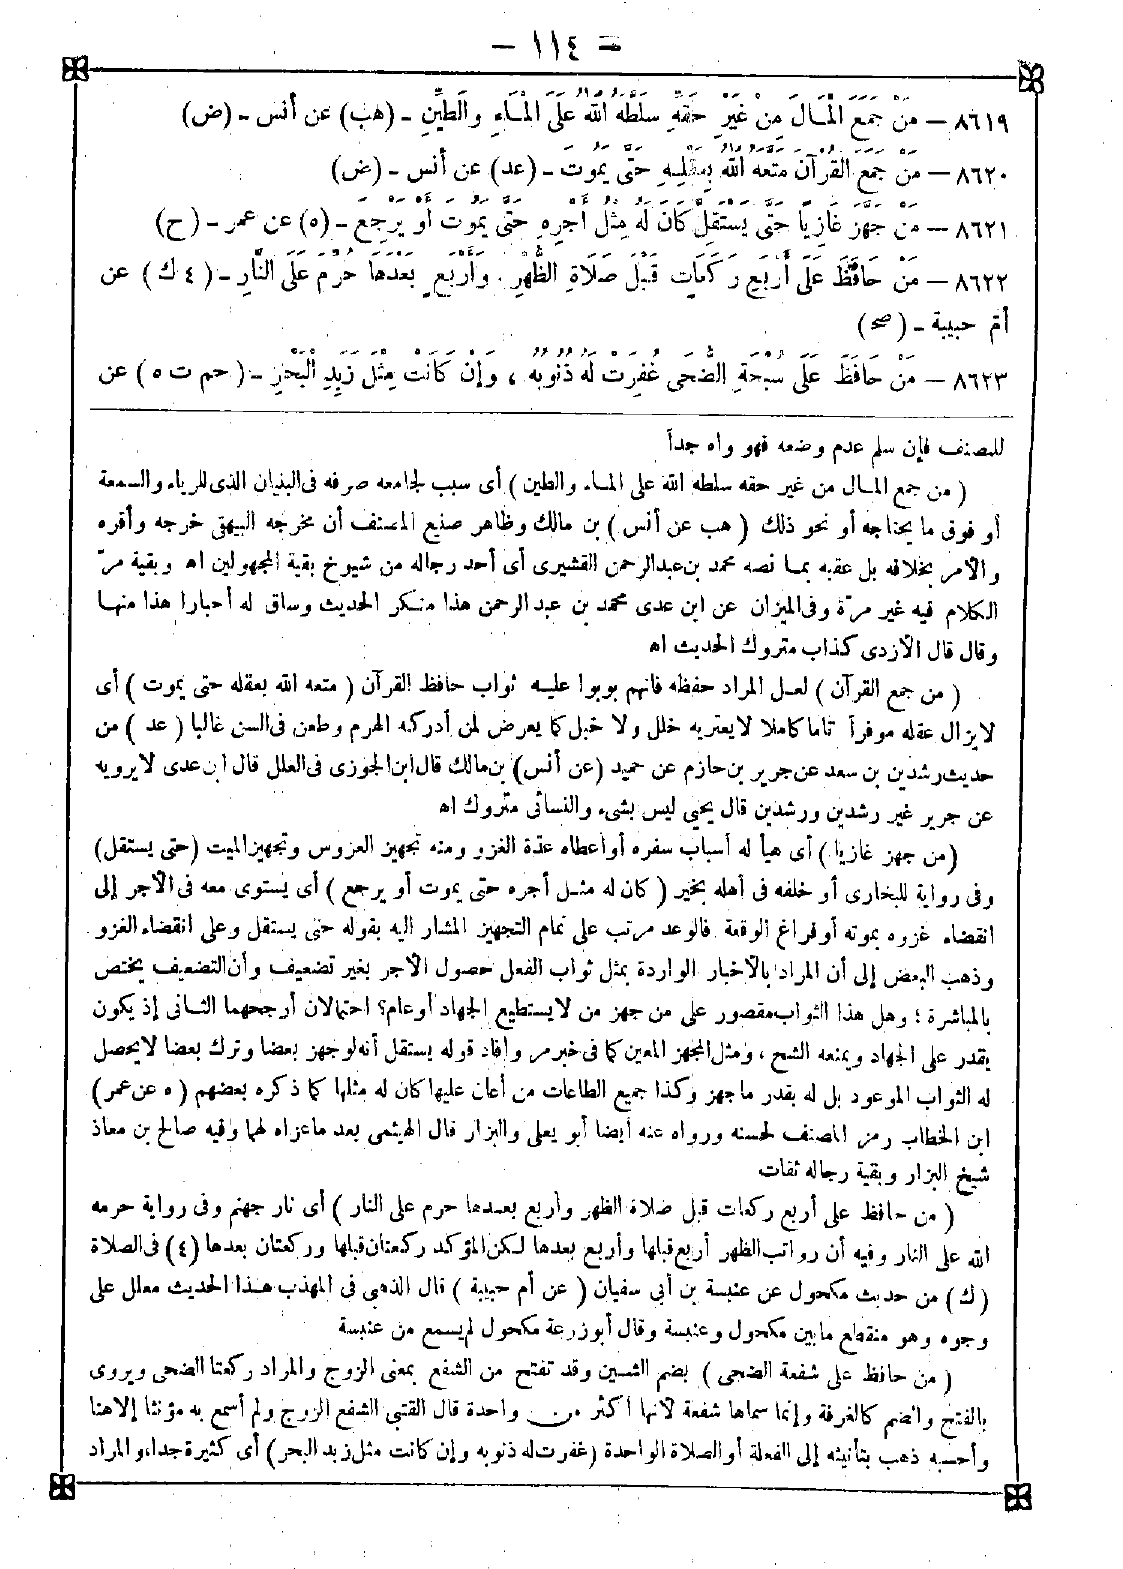 - ١١٤ -
٨٦١٩ - مَنْ جَمَعَ الْمَالَ مِنْ غَيْرِ حَقِّهِ سَلَّطَهُ اللهُ عَلَى الْمَاءِ وَالطِّينِ - (هب) عن أنس - (ض)
٨٦٢٠ - مَنْ جَمَعَ الْقُرْآنَ مَتَّعَهُ اللهُ بِعَقْلِهِ حَتَّى يَمُوتَ - (عد) عن أنس - (ض)
٨٦٢١ - مَنْ جَهَّزَ غَازِيًا حَتَّى يَسْتَقِلَّ كَانَ لَهُ مِثْلُ أَجْرِهِ حَتَّى يَمُوتَ أَوْ يَرْجِعَ - (ه) عن عمر - (ح)
٨٦٢٢ - مَنْ حَافَظَ عَلَى أَرْبَعِ رَكَعَاتٍ قَبْلَ صَلَاةِ الظُّهْرِ وَأَرْبَعٍ بَعْدَهَا حُرِّمَ عَلَى النَّارِ - ( ٤ ك ) عن
أم حبيبة - (صح)
٨٦٢٣ - مَنْ حَافَظَ عَلَى سُبْحَةِ الضُّحَى غُفِرَتْ لَهُ ذُنُوبُهُ ، وَإِنْ كَانَتْ مِثْلَ زَبَدِ الْبَحْرِ - ( حم ت ه ) عن
للمصنف فإن سلم عدم وضعه فهو واه جداً
( من جمع المال من غير حقه سلطه الله على الماء والطين ) أى سبب لجامعه صرفه فى البنيان الذى للرياء والسمعة
أو فوق ما يحتاجه أو نحو ذلك ( هب عن أنس ) بن مالك وظاهر صنيع المصنف أن مخرجه البيهقى خرجه وأقره
والأمر بخلافه بل عقبه بما نصه محمد بن عبدالرحمن القشيرى أى أحد رجاله من شيوخ بقية المجهولين اه وبقية مرّ
الكلام فيه غير مرّة وفى الميزان عن ابن عدى محمد بن عبد الرحمن هذا منكر الحديث وساق له أخبارا هذا منها
وقال قال الأزدى كذاب متروك الحديث اه
( من جمع القرآن ) لعل المراد حفظه فانهم بوبوا عليه ثواب حافظ القرآن ( متعه الله بعقله حتى يموت ) أى
لا يزال عقله موفراً تاما كاملا لا يعتريه خلل ولا خبل كما يعرض لمن أدركه الهرم وطعن فى السن غالبا ( عد ) من
حديث رشدين بن سعد عن جرير بن حازم عن حميد (عن أنس) بن مالك قال ابن الجوزى فى العلل قال ابن عدى لا يرويه
عن جرير غير رشدين ورشدين قال يحيى ليس بشىء والنسائى متروك اه
(من جهز غازيا) أى هيأ له أسباب سفره أو أعطاه عدّة الغزو ومنه تجهيز العروس وتجهيز الميت (حتى يستقل)
وفى رواية للبخارى أو خلفه فى أهله بخير ( كان له مثل أجره حتى يموت أو يرجع ) أى يستوى معه فى الأجر إلى
انقضاء غزوه بموته أو فراغ الوقعة فالوعد مرتب على تمام التجهيز المشار اليه بقوله حتى يستقل وعلى انقضاء الغزو
وذهب البعض إلى أن المراد بالأخبار الواردة بمثل ثواب الفعل حصول الأجر بغير تضعيف وأن التضعيف يختص
بالمباشرة ؛ وهل هذا الثواب مقصور على من جهز من لا يستطيع الجهاد أو عام؟ احتمالان أرجحهما الثانى إذ يكون
يقدر على الجهاد ويمنعه الشح ، ومثل المجهز المعين كما فى خبر مر وأفاد قوله يستقل أنه لو جهز بعضا وترك بعضا لا يحصل
له الثواب الموعود بل له بقدر ما جهز وكذا جميع الطاعات من أعان عليها كان له مثلها كما ذكره بعضهم ( ه عن عمر )
ابن الخطاب رمز المصنف لحسنه ورواه عنه أيضا أبو يعلى والبزار قال الهيثمى بعد ما عزاه لهما وفيه صالح بن معاذ
شيخ البزار وبقية رجاله ثقات
( من حافظ على أربع ركعات قبل صلاة الظهر وأربع بعدها حرم على النار ) أى نار جهنم وفى رواية حرمه
الله على النار وفيه أن رواتب الظهر أربع قبلها وأربع بعدها لكن المؤكد ركعتان قبلها وركعتان بعدها (٤) فى الصلاة
( ك ) من حديث مكحول عن عنبسة بن أبي سفيان ( عن أم حبيبة ) قال الذهبى فى المهذب هذا الحديث معلل على
وجوه وهو منقطع ما بين مكحول وعنبسة وقال أبو زرعة مكحول لم يسمع من عنبسة
( من حافظ على شفعة الضحى ) بضم الشين وقد تفتح من الشفع بمعنى الزوج والمراد ركعتا الضحى ويروى
بالفتح والضم كالغرفة وإنما سماها شفعة لأنها أكثر من واحدة قال القتبى الشفع الزوج ولم أسمع به مؤنثا إلا هنا
وأحسبه ذهب بتأنيثه إلى الفعلة أو الصلاة الواحدة (غفرت له ذنوبه وإن كانت مثل زبد البحر) أى كثيرة جدا، والمراد